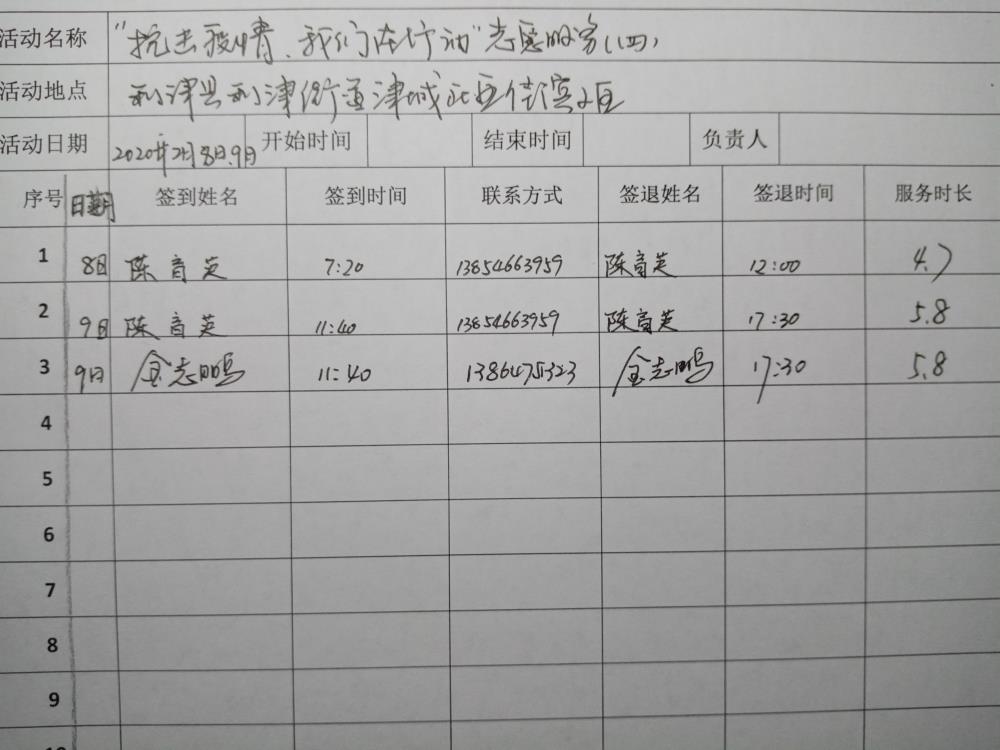 活动名称 "抗击疫情、我们在行动"志愿服务(四)
活动地点 利津县利津街道津城社区佳滨小区
活动日期 2020年2月8日、9日 开始时间 结束时间 负责人
序号 日期 签到姓名 签到时间 联系方式 签退姓名 签退时间 服务时长
1 8日 陈育英 7:20 13854663959 陈育英 12:00 4.7
2 9日 陈育英 11:40 13854663959 陈育英 17:30 5.8
3 9日 金志鹏 11:40 13864751323 金志鹏 17:30 5.8
4
5
6
7
8
9
10